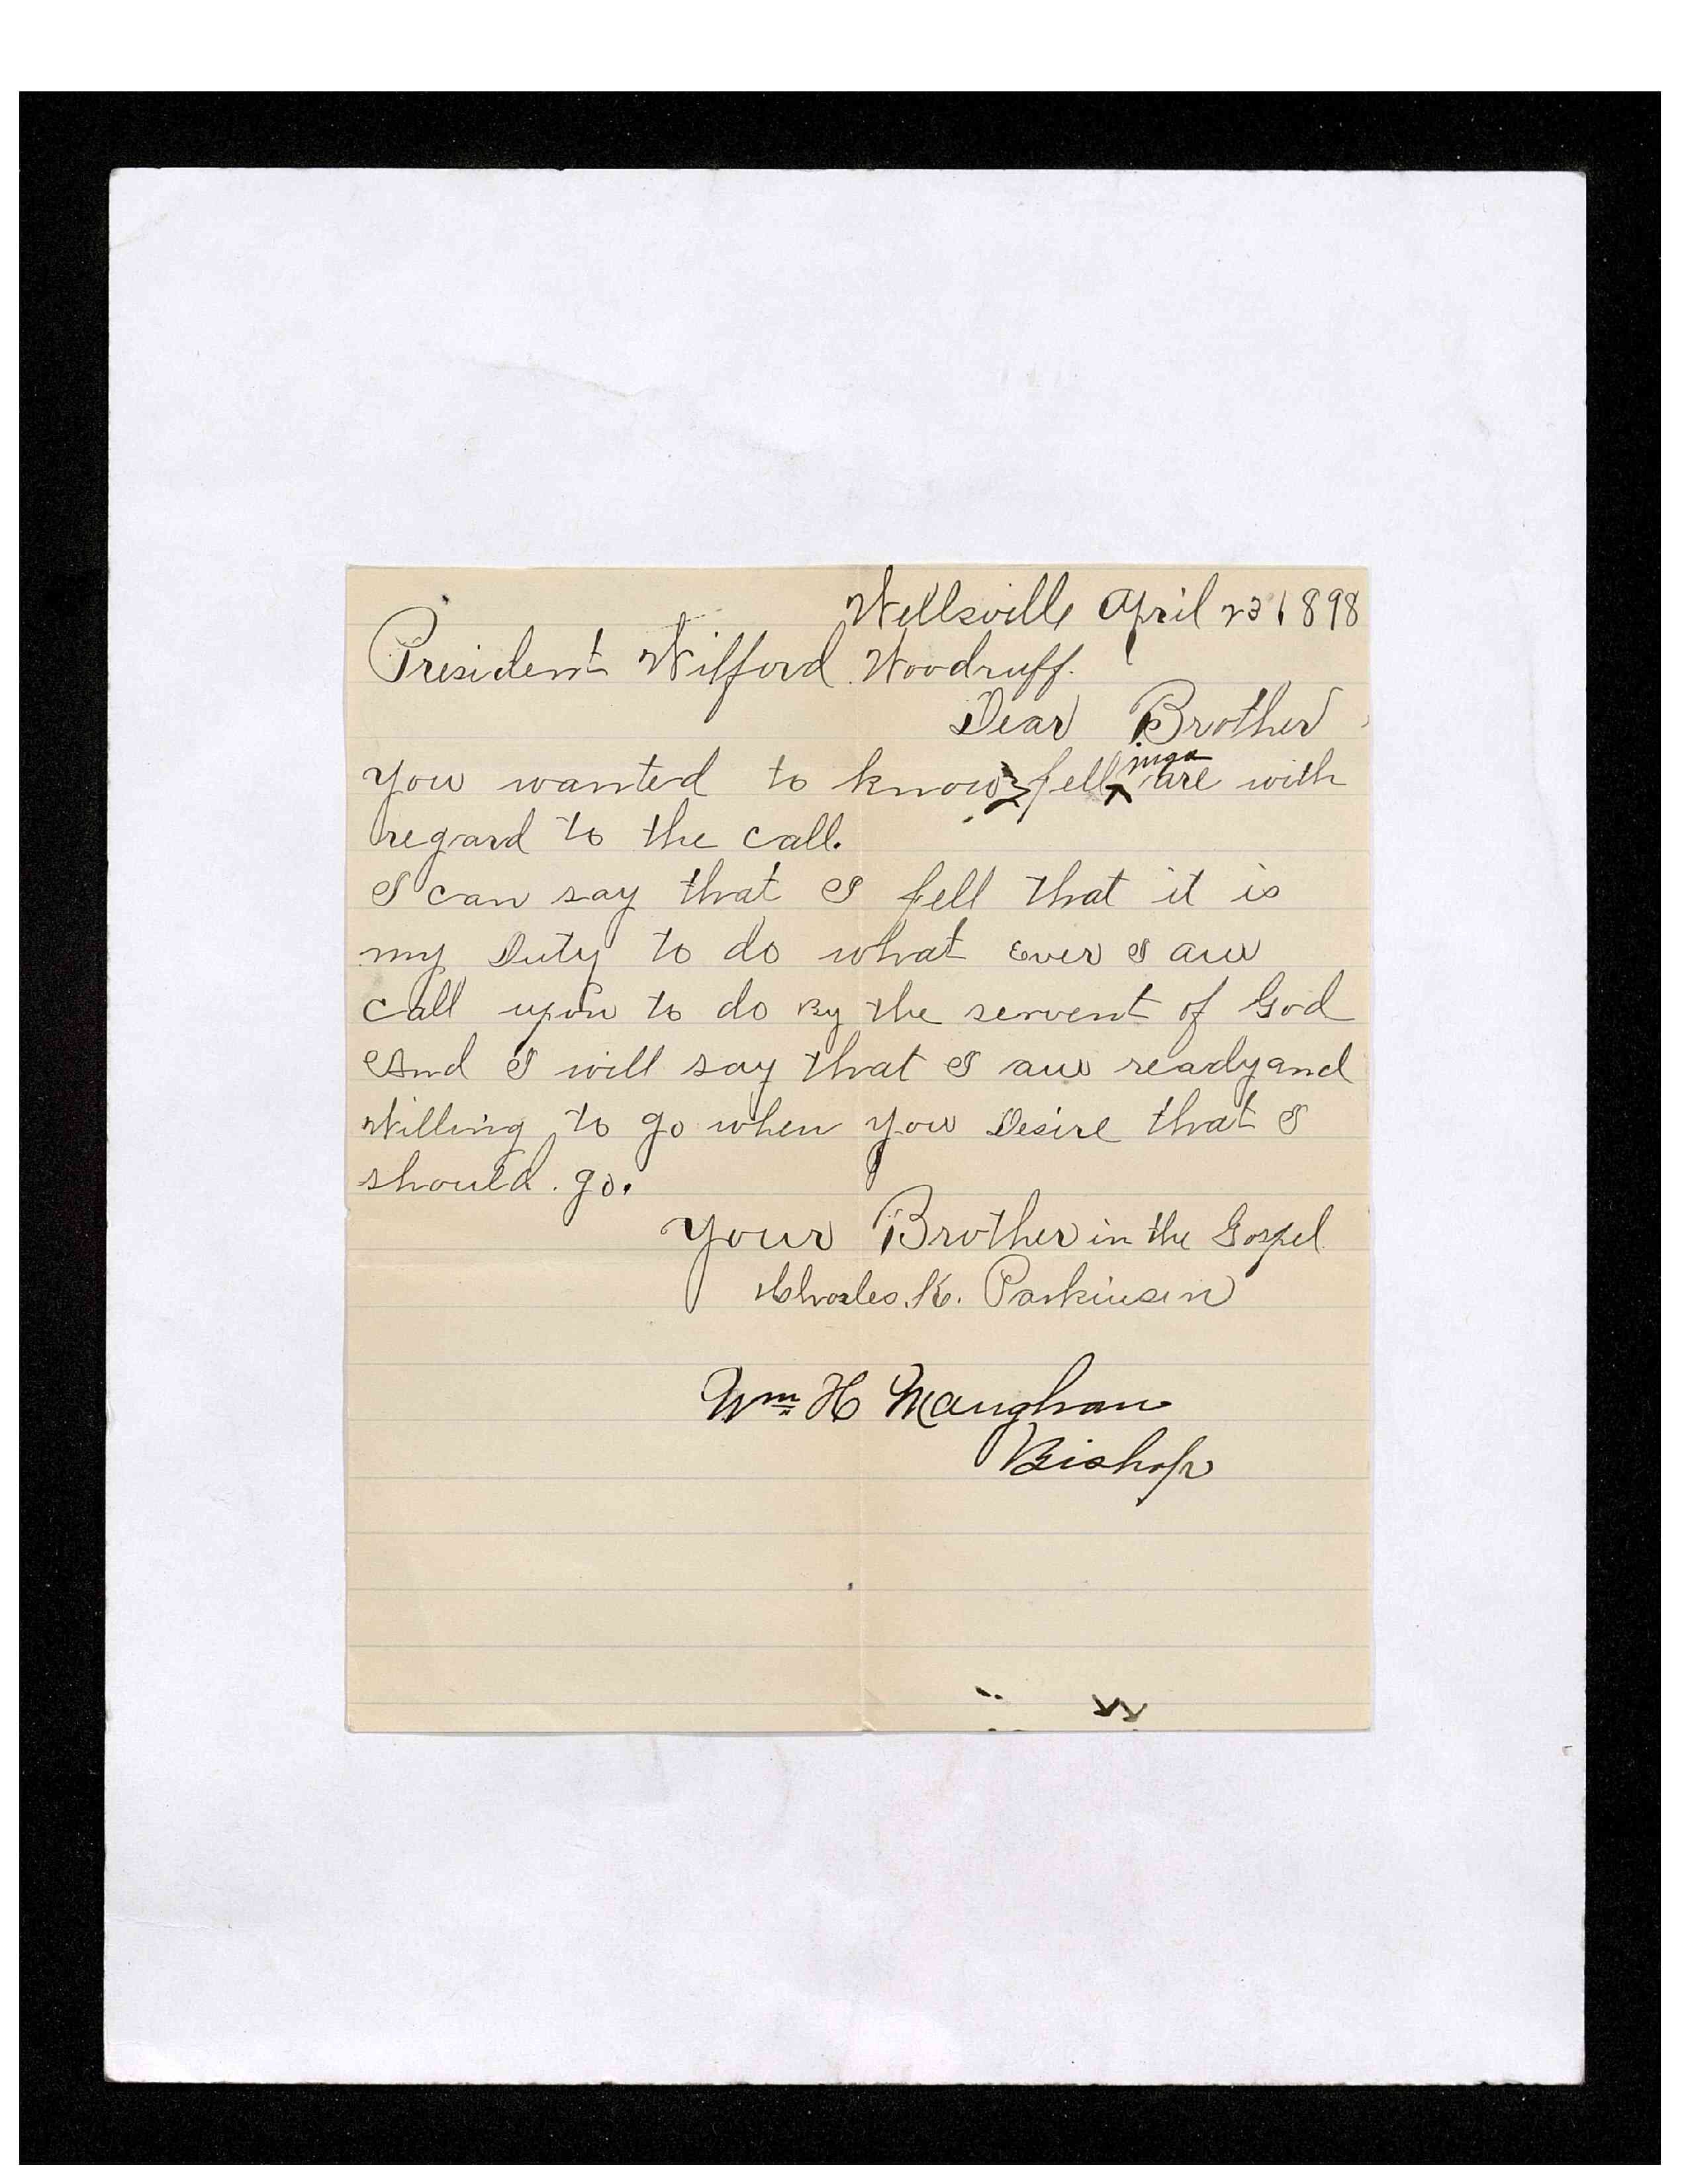 Wellsville April 23 1898
President Wilford Woodruff.
Dear Brother
You wanted to know fellings are with
regard to the call.
I can say that I fell that it is
my Duty to do what Ever I am
call upon to do By the servent of God
And I will say that I am ready and
Willing to go when you Desire that I
should go.
Your Brother in the Gospel
Charles K. Parkinson
Wm H Maughan
Bishop